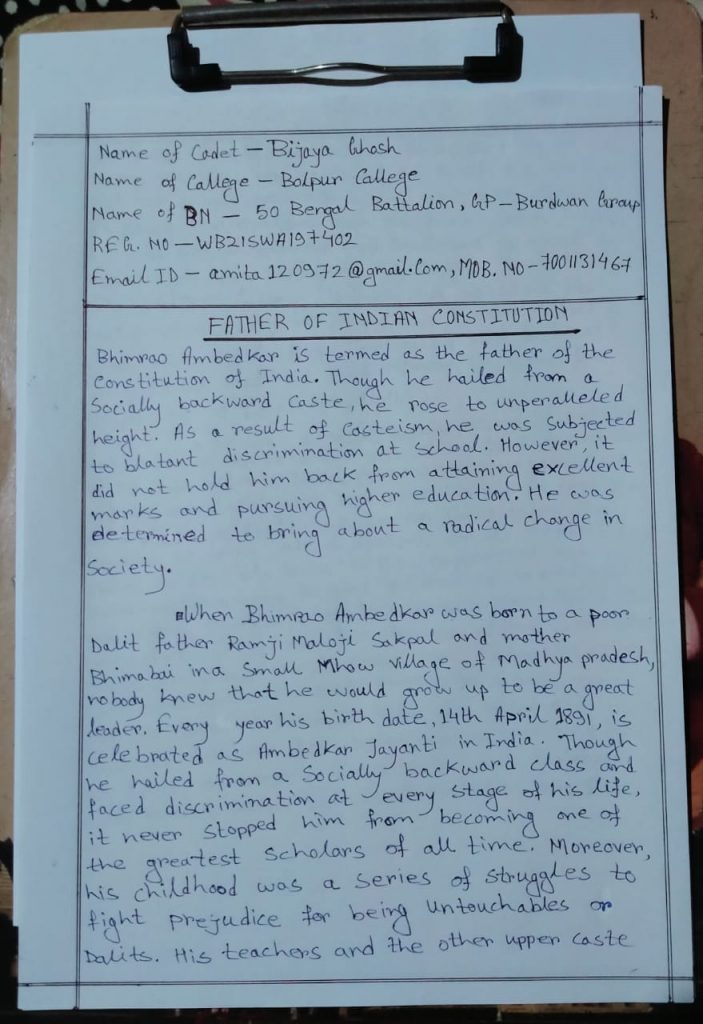 Name of Cadet – Bijaya Ghosh
Name of College – Bolpur College
Name of BN – 50 Bengal Battalion, GP – Burdwan Group
REG. NO – WB21SWA197402
Email ID – amita120972@gmail.com, MOB. NO – 7001131467
FATHER OF INDIAN CONSTITUTION
Bhimrao Ambedkar is termed as the father of the
Constitution of India. Though he hailed from a
Socially backward caste, he rose to unperalleled
height. As a result of Casteism, he was Subjected
to blatant discrimination at School. However, it
did not hold him back from attaining excellent
marks and pursuing higher education. He was
determined to bring about a radical change in
Society.
When Bhimrao Ambedkar was born to a poor
Dalit father Ramji Maloji Sakpal and mother
Bhimabai in a Small Mhow village of Madhya pradesh,
nobody knew that he would grow up to be a great
leader. Every year his birth date, 14th April 1891, is
celebrated as Ambedkar Jayanti in India. Though
he hailed from a Socially backward class and
faced discrimination at every stage of his life,
it never stopped him from becoming one of
the greatest Scholars of all time. Moreover,
his childhood was a series of struggles to
fight prejudice for being Untouchables or
Dalits. His teachers and the other upper caste